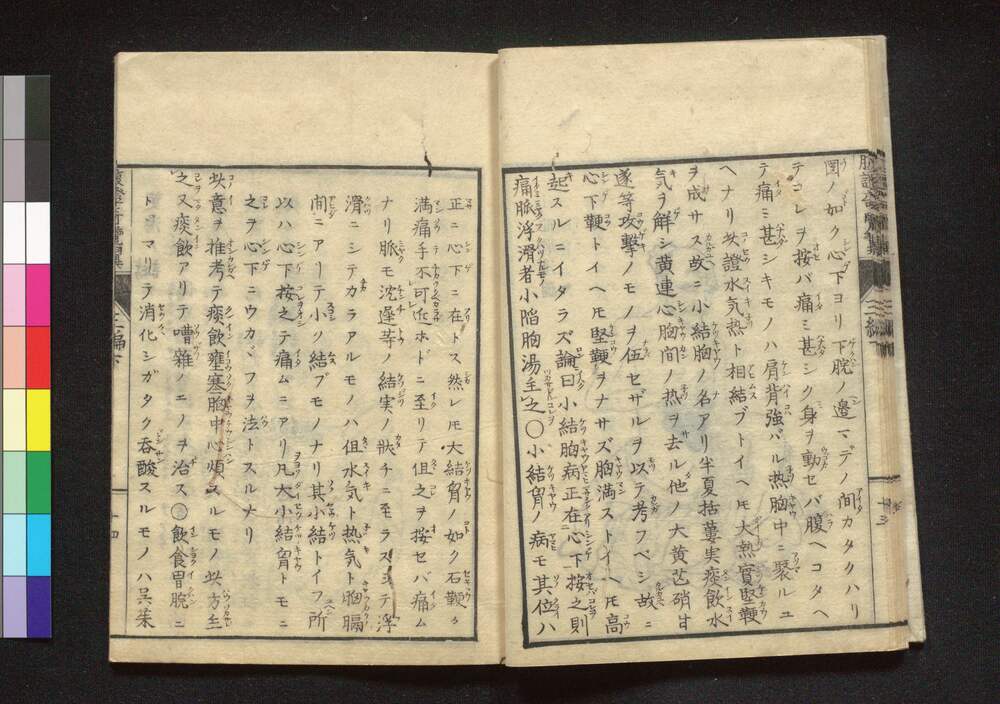 圖ノ如ク心下ヨリ下脘ノ邉マデノ間カタクハリ
テコレヲ按バ痛ミ甚シク身ヲ動セバ腹ヘコタヘ
テ痛ミ甚シキモノハ肩背強バル熱胸中ニ聚ルユ
ヘナリ此證水気熱ト相結ブトイヘ𪜈大熱實堅鞕
ヲ成サス故ニ小結胸ノ名アリ半夏括蔞実痰飲水
気ヲ解シ黄連心胸間ノ热ヲ去ル他ノ大黄芒硝甘
遂等攻撃ノモノヲ伍セザルヲ以テ考フベシ故ニ
心下鞕トイヘ𪜈堅鞕ヲナサズ胸満ストイヘ𪜈高
起スルニイタラズ論曰小結胸病正在心下按之則
痛脈浮滑者小陷胸湯主之〇小結胷ノ病モ其位ハ
正ニ心下ニ在トス然レ𪜈大結胷ノ如ク石鞕
満痛手不可近ホドニ至リテ但之ヲ按セバ痛ム
ナリ脈モ沈遲等ノ結実ノ狀チニ至ラスシテ浮
滑ニシテカラアルモノハ但水気ト热気ト胸膈
間ニアリテ小ソ結ブモノナリ其小結トイフ所
以ハ心下按之テ痛ムニアリ凡大小結胷トモニ
之ヲ心下ニウカヾフヲ法トスルナリ
此意ヲ推考テ痰飲壅塞胸中心煩スルモノ此方主
之又痰飲アリテ嘈雜ノモノヲ治ス〇飲食胃脘ニ
トマリテ消化シガタク呑酸スルモノハ呉茱